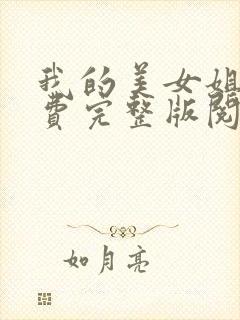 我的美女姐
费完整版阅
如月亮